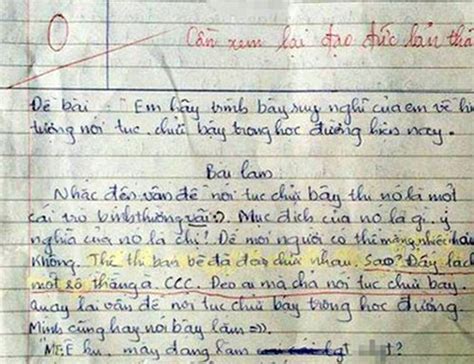 0
Cần xem lại đạo đức bản thâ
Đề bài: "Em hãy trình bày suy nghĩ của em về hi
tượng nói tục, chửi bậy trong học đường hiện nay.
Bài làm
Nhắc đến vấn đề nói tục chửi bậy thì nó là một
cái trò bình thường vãi :). Mục đích của nó là gì, ý
nghĩa của nó là chi? Để mọi người có thể mắng nhiếc nhau
Không. Thế thì bạn bè đã đéo chửi nhau. Sao? Đấy là c
một số thằng à. CCC. Đéo ai mà chả nói tục chửi bậy.
quay lại vấn đề nói tục chửi bậy trong học đường.
Mình cũng hay nói bậy lắm =)).
máy đang làm